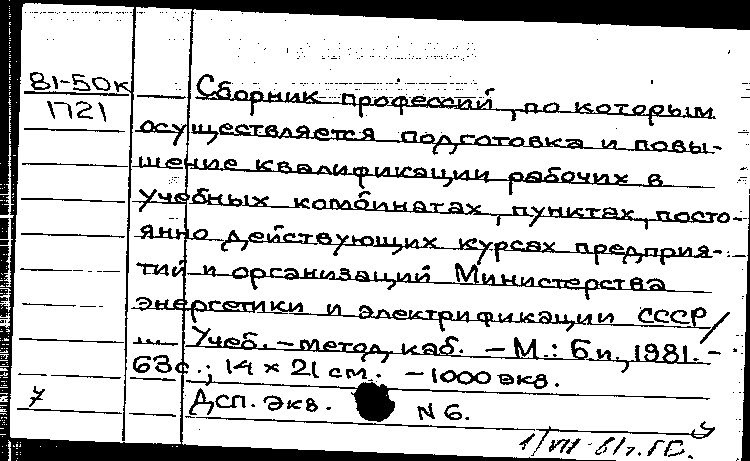 81-50к
1721
Сборник профессий, по которым
осуществляется подготовка и повы-
шение квалификации рабочих в
учебных комбинатах, пунктах, посто-
янно действующих курсах предприя-
тий и организаций Министерства
энергетики и электрификации СССР /
... Учеб. - метод, каб. - М.: Б.и., 1981. -
63с.; 14 х 21 см. - 1000 экз.
Дсп. Экз. N 6.
у
1/VII-81г.